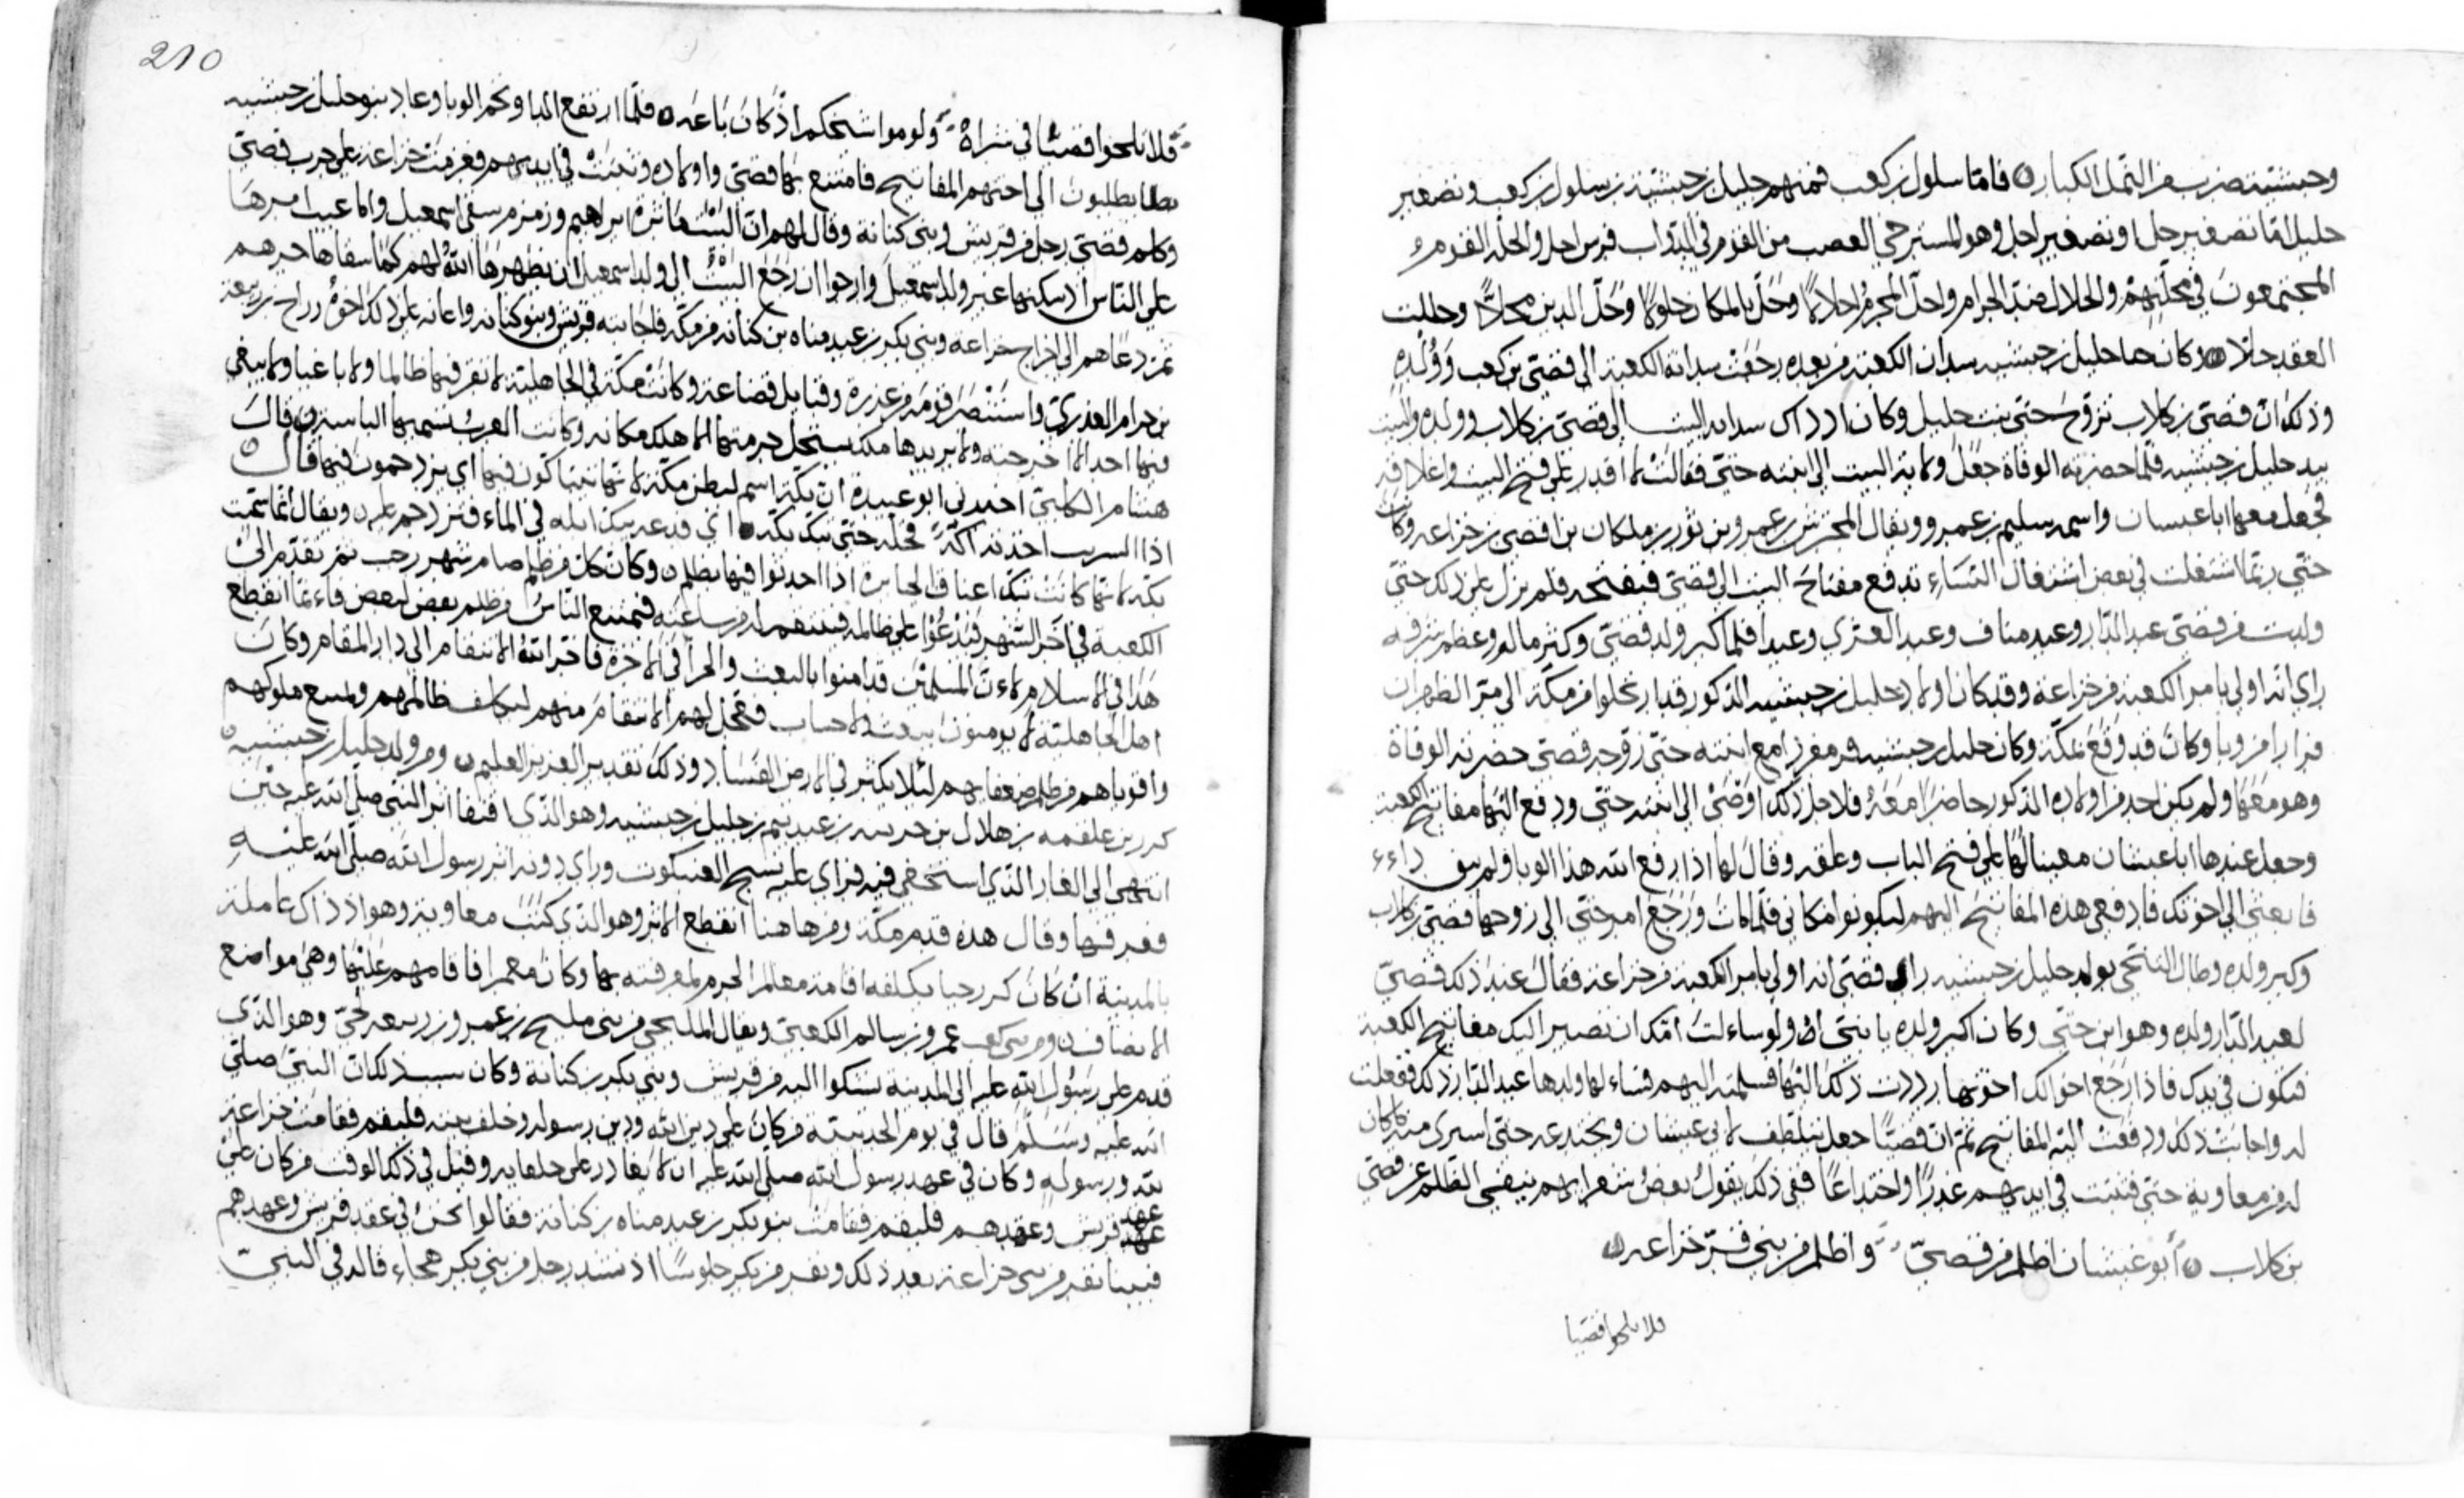 وحبشية ضرب من النمل الكبار ۞ فاما سلول بن كعب فمنهم حليل بن حبشية بن سلول بن كعب وتصغير
حليل اما تصغير حل او تصغير احل وهو المسترخي العصب من القوم في الدواب فرس احل والحلة القوم
المجتمعون في محلتهم والحلال ضد الحرام واحل المحرم احلالا وحل بالمكان حلولا وحل الدين محلا وحللت
العقد حلا ۞ وكان حليل بن حبشية سادن الكعبة من بعده رجعت سدانة الكعبة الى قصي بن كعب وولده
وذلك ان قصي بن كلاب تزوج حبى بنت حليل وكان اذ ذاك سدانه البيت الى قصي بن كلاب وولده والبيت
بيد حليل بن حبشيه فلما حضرته الوفاه جعل ولاية البيت الى ابنته حبى فقالت لا اقدر على فتح البيت واغلاقه
فجعل معها ابا غبسان واسمه سليم بن عمرو ويقال المحترش بن عمرو بن ثور بن ملكان بن افصى بن خزاعه وكانت
حبى ربما اشتغلت في بعض اشتغال النساء تدفع مفتاح البيت الى قصي فيفتحه فلم يزل على ذلك حتى
ولدت من قصي عبد الدار وعبد مناف وعبد العزى وعبدا فلما كبر ولد قصي وكثر ماله وعظم شرفه
راى انه اولى بامر الكعبة من خزاعة وقد كان اولاد حليل بن حبشيه المذكور قد ارتحلوا من مكة الى مر الظهران
فرارا من وبا وكان قد وقع بمكة وكان حليل بن حبشيه مع ابنته حبى زوجة قصي حضرته الوفاة
وهو معها ولم يكن احد من اولاده المذكور حاضرا معه فلاجل ذلك اوصى الى ابنته حبى ودفع اليها مفاتيح الكعبة
وجعل عندها ابا غبشان معينا لها على فتح الباب وغلقه وقال لها اذا رفع الله هذا الوبا ولم يبق داءء
فابعثي الى اخوتك فادفعي هذه المفاتيح اليهم ليكونوا مكاني فلما مات ورجع امر حبى الى زوجها قصي بن كلاب
وكبر ولده وطال التنحي بولد حليل بن حبشيه راى قصي انه اولى بامر الكعبة من خزاعة فقال عند ذلك قصي
لعبد الدار ولده وهو ابن حبى وكان اكبر ولده يا بني لو ساءلت امك ان تصير اليك مفاتيح الكعبة
فتكون في يدك فاذا رجع اخوالك اخوتها رددت ذلك اليها فسلمته اليهم فساء لها ولدها عبد الدار ذلك ففعلت
له واجابت ذلك ودفعت اليه المفاتيح ثم ان قصيا جعل يتلطف لابي غبشان ويخدعه حتى اشترى منه ما كان
له من معاونة حبى فثبتت في ايديهم غدرا واختداعا ففي ذلك يقول بعض شعرايهم ينفي الظلم عن قصي
بن كلاب ۞ ابو غبشان اظلم من قصي وا ظلم من بني فهر خزاعه ۞
فلا تلحوا قصيا
210
فلا تلحوا قصيا في شراه ولوموا شيخكم اذ كان باعه ۞ فلما ارتفع الداا ونجم الوبا وعاد بنو حليل بن حبشيه
يطلبون الى اختهم المفاتيح فامتنع بها قصي واولاده وثبتت في ايديهم فعزمت خزاعه على حرب قصي
وكلم قصي رجل من قريش وبني كنانة وقال لهم ان البيت ماثرة ابراهيم وزمزم سقي اسمعيل والا عيب امرها
على الناس اذ سكنها غير ولد اسمعيل وارجوا ان رجع البيت الى ولد اسمعيل ان يطهرها الله لهم كما سقاها جرهم
ثم دعاهم الى اخراج خزاعة وبني بكر بن عبد مناه بن كنانة من مكة فاجابته قريش وبنو كنانه واعانه على ذلك اخوه رزاح بن ربيعة
بن حرام العذري واستنصر قومه من عذرة وقبايل قضاعه وكانت مكة في الجاهلية لا تقر فيها ظالما ولا باغيا ولا يبغي
فيها احد الا اخرجته ولا يريدها ملك يستحل حرمتها الا هلك مكانه وكانت العرب تسميها الباسة ۞ قال
هشام الكلبي اخبرني ابو عبيدة ان بكة اسم لبطن مكة لانهم يتباكون فيها اي يزدحمون فيها قال ۞
اذا الشريب اخذته اكّه فخله حتى يبك بكه ۞ اي فدعه يبك ابله في الماء فتزدحم عليه ۞ ويقال انما سميت
بكة لانها كانت تبك اعناق الجبابرة اذا احدثوا فيها بظلم ۞ وكان كل من ظلم صام شهر رجب ثم تقدم الى
الكعبة في اخر الشهر فيدعوا على ظالمه فينتقم له من ساعته فيمتنع الناس من ظلم بعض لبعض فاءنما انقطع
هذا في الاسلام لاءن المسلمين قد امنوا بالبعث والجزا في الاخرة فاخر الله الانتقام الى دار المقام وكان
اهل الجاهلية لا يومنون ببعث ولا حساب فعجل لهم الانتقام منهم ليكف ظالمهم ويمنع ملوكهم
واقوياهم من ظلم ضعفايهم لئلا يكثر في الارض الفساد وذلك تقدير العزيز العليم ۞ ومن ولد حليل بن حبشيه
كرز بن علقمه بن هلال بن جريبه بن عبد نهم بن حليل بن حبشيه وهو الذي قفا اثر النبي صلى الله عليه حين
انتهى الى الغار الذي استخفى فيه فراى عليه نسج العنكبوت وراى دونه اثر رسول الله صلى الله عليه
فعرفها وقال هذه قدم مكة ومن هاهنا انقطع الاثر وهو الذي كتب معاوية وهو اذ ذاك عامله
بالمدينة ان كان كرز حيا يكلفه اقامة معالم الحرم لمعرفته بها وكان معمرا فاقامهم عليها وهي مواضع
الانصاف ۞ ومن بني كعب عمرو بن سالم الكعبي ويقال المليحي من بني مليح بن عمرو بن ربيعه لحي وهو الذي
قدم على رسول الله عليه الى المدينة يشكوا اليه من قريش وبني بكر بن كنانة وكان سبب ذلك ان النبي صلى
الله عليه وسلم قال في يوم الحديبية من كان على دين الله ودين رسوله وحلف بيته فليقم فقامت خزاعة
لله ورسوله وكان في عهد رسول الله صلى الله عليه ان لا يغادر على حلفايه وقيل في ذلك الوقت من كان على
عهد قريش وعقدهم فليقم فقامت بنو بكر بن عبد مناه بن كنانة فقالوا نحن في عقد قريش وعهدهم
فبينا نفر من بني خزاعة بعد ذلك ونفر من بكر جلوسا اذ انشد رجل من بني بكر هجاء قاله في النبي